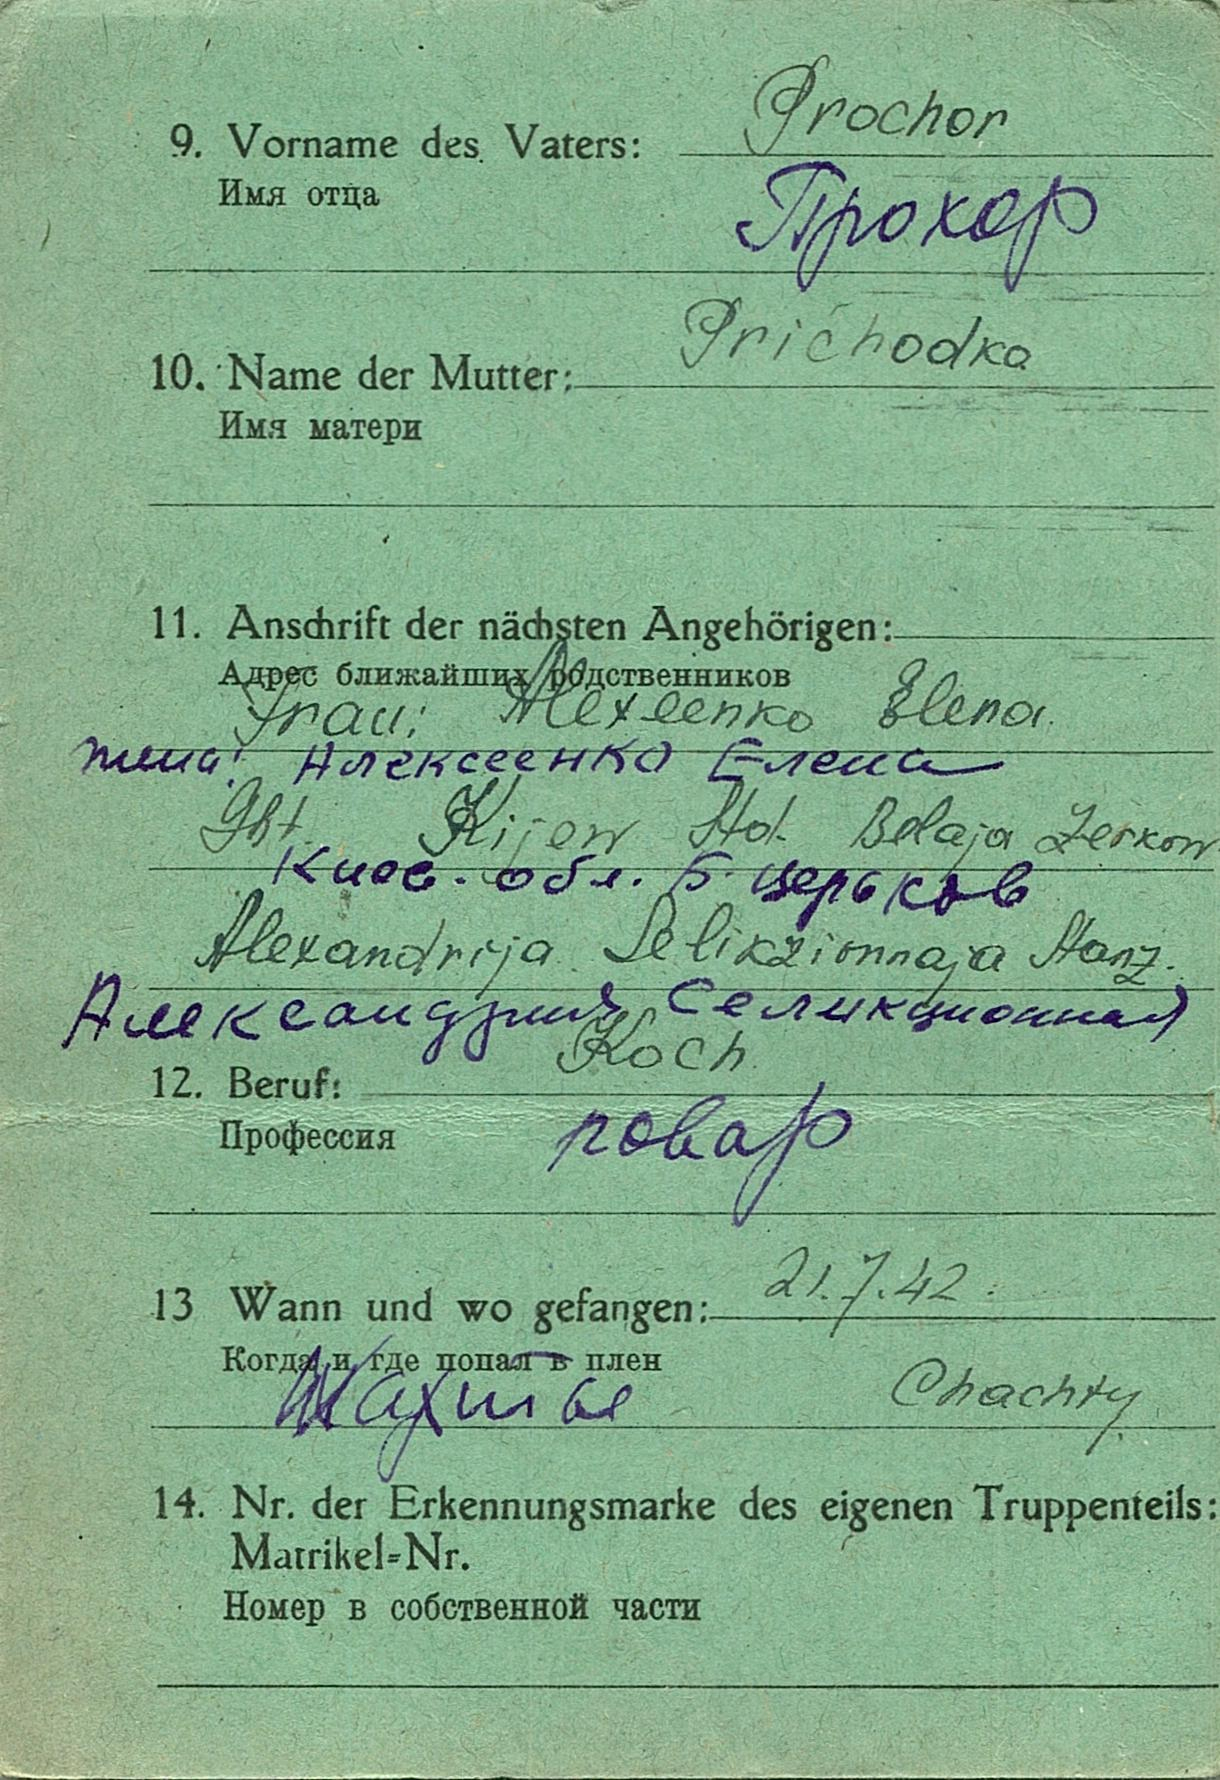 9. Vorname des Vaters: Prochor
Имя отца
Прохор
10. Name der Mutter: Prichodka
Имя матери
11. Anschrift der nächsten Angehörigen:
Адрес ближайших родственников
Frau: Alexeenko Elena
жена: Алексеенко Елена
Gbt. Kijew Std. Belaja Zerkow
Киев. обл. Б. Церьков
Alexandrija Selikzionnaja Stanz.
Александрия Селикционная
12. Beruf: Koch
Профессия
повар
13 Wann und wo gefangen: 21.7.42.
Когда и где попал в плен
Шахты Chachty
14. Nr. der Erkennungsmarke des eigenen Truppenteils:
Matrikel=Nr.
Номер в собственной части